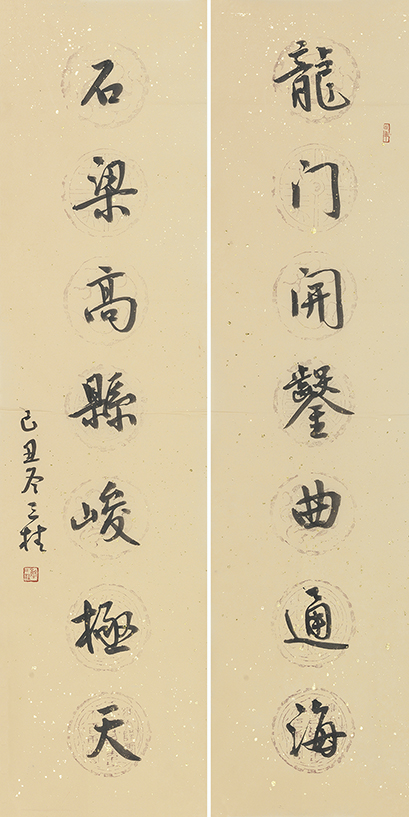 龍门開鑿曲通海
石梁高縣峻極天
己丑冬三桂